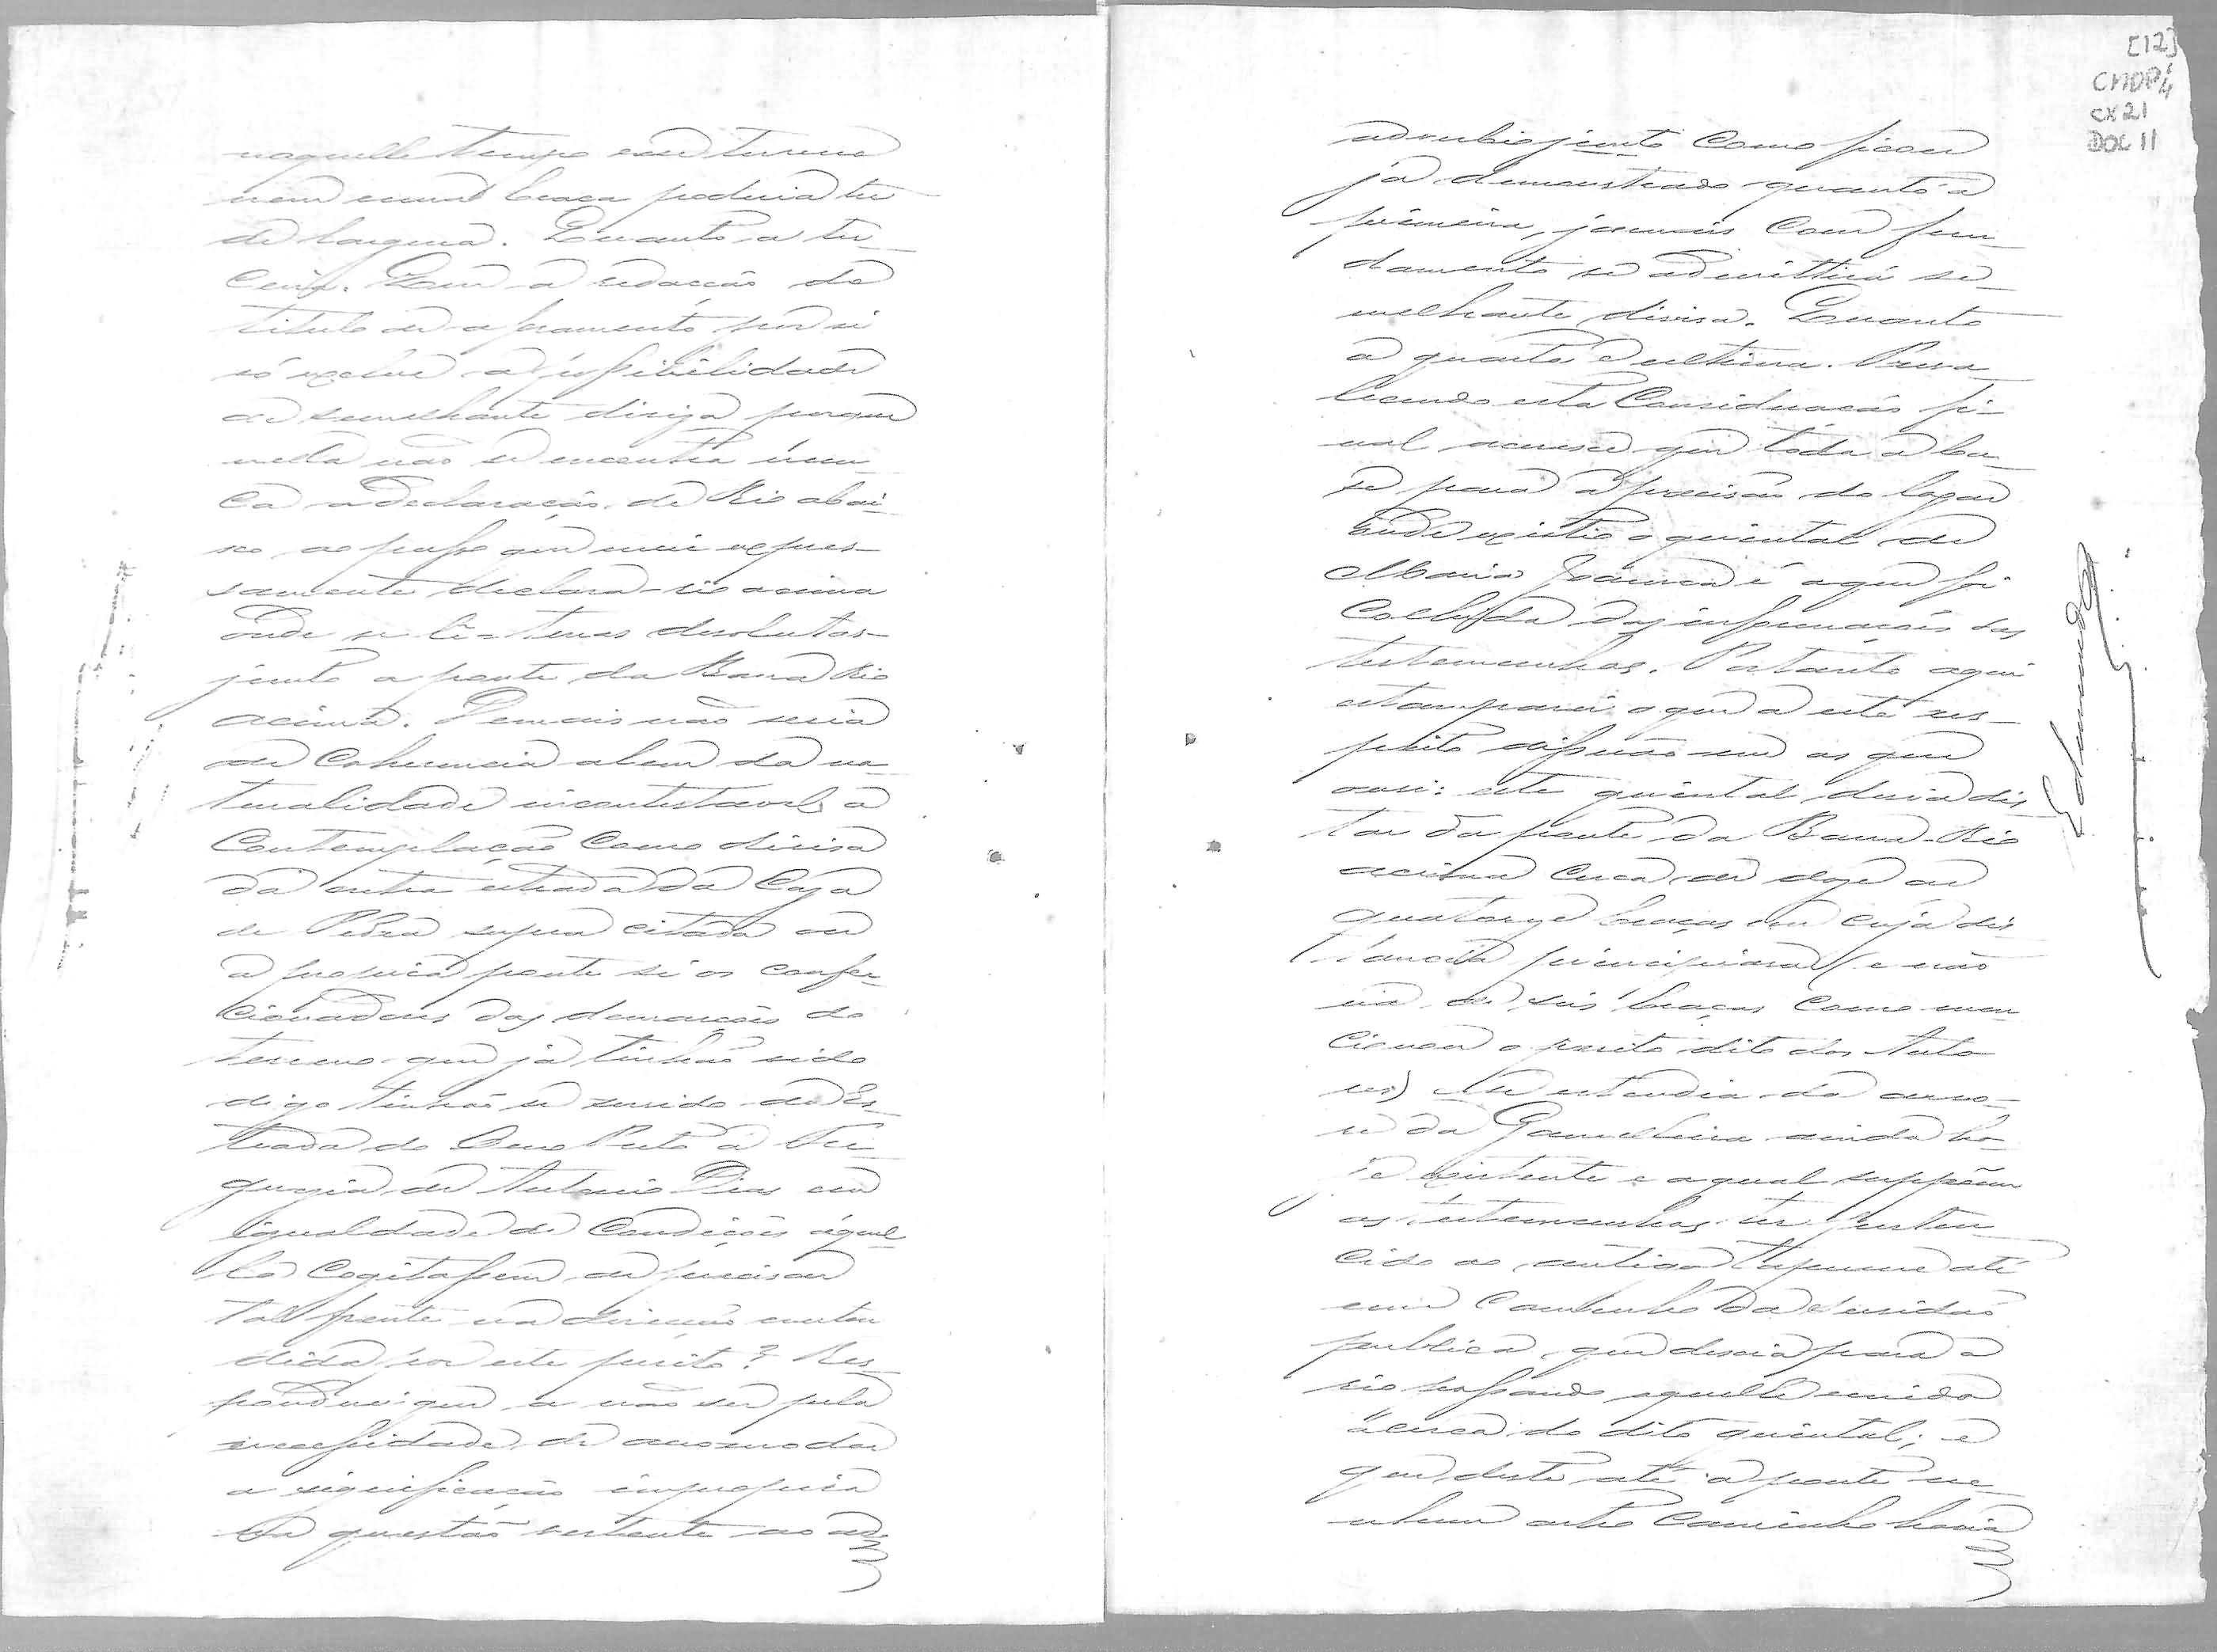 naquelle tempo esse terreno
nem uma braça poderia ter
de largura. Quanto a ter-
ceira. Com a redacção do
titulo de aforamento por si
só exclue a possibilidade
de semelhante divisa porque
nella não se encontra nun-
ca a declaração de Rio abai-
xo ao passo que mui expres-
samente declara-rio acima
onde se lê-terras devolutas-
junto a ponte da Barra Rio
acima. Demais não seria
de coherencia alem da na-
turalidade incontestavel a
contemplação como divisa
da outra estrada da Casa
de Pedra supra citada ou
a propria ponte si os confec-
cionadores das demarcações do
terreno que já tinhão sido
digo tinhão se servido da Es-
trada do Ouro Preto á Fre-
guezia de Antonio Dias em
igualdade de condições áquel-
la cogitassem de precisar
tal ponte na direcção enten-
dida por este perito? Res-
ponderei que a não ser pela
necessidade de accomodar
a significação impropria
na questão vertente ao ad-
[12]
CMOP
CX 21
DOC 11
adverbio junto como ficou
já demonstrado quanto á
primeira, jamais com fun-
damento se admittirá se-
melhante divisa. Quanto
a quarta e ultima. Preva-
lecendo esta consideração fi-
nal accresce que toda a ba-
se para a precisão do lugar
onde existio o quintal de
Maria Franca é a que foi
colhida das informações das
testemunhas. Portanto aqui
estamparei o que a este res-
peito disserão-me as que
ouvi: este quintal devia dis-
tar da ponte da Barra-Rio
acima cerca de doze ou
quatorze braças em cuja dis-
tancia principiava (e não
na de seis braças como men-
cionou o perito dito dos Auto-
res) e se estendia da arvo-
re da Gamelleira ainda ho-
je existente e a qual suppõem
as testemunhas ter perten-
cido ao antigo tapume até
um caminho da servidão
publica, que descia para o
rio passando aquelle unido
á cerca do dito quintal; e
que deste até a ponte ne-
nhum outro caminho havia
Edmundo